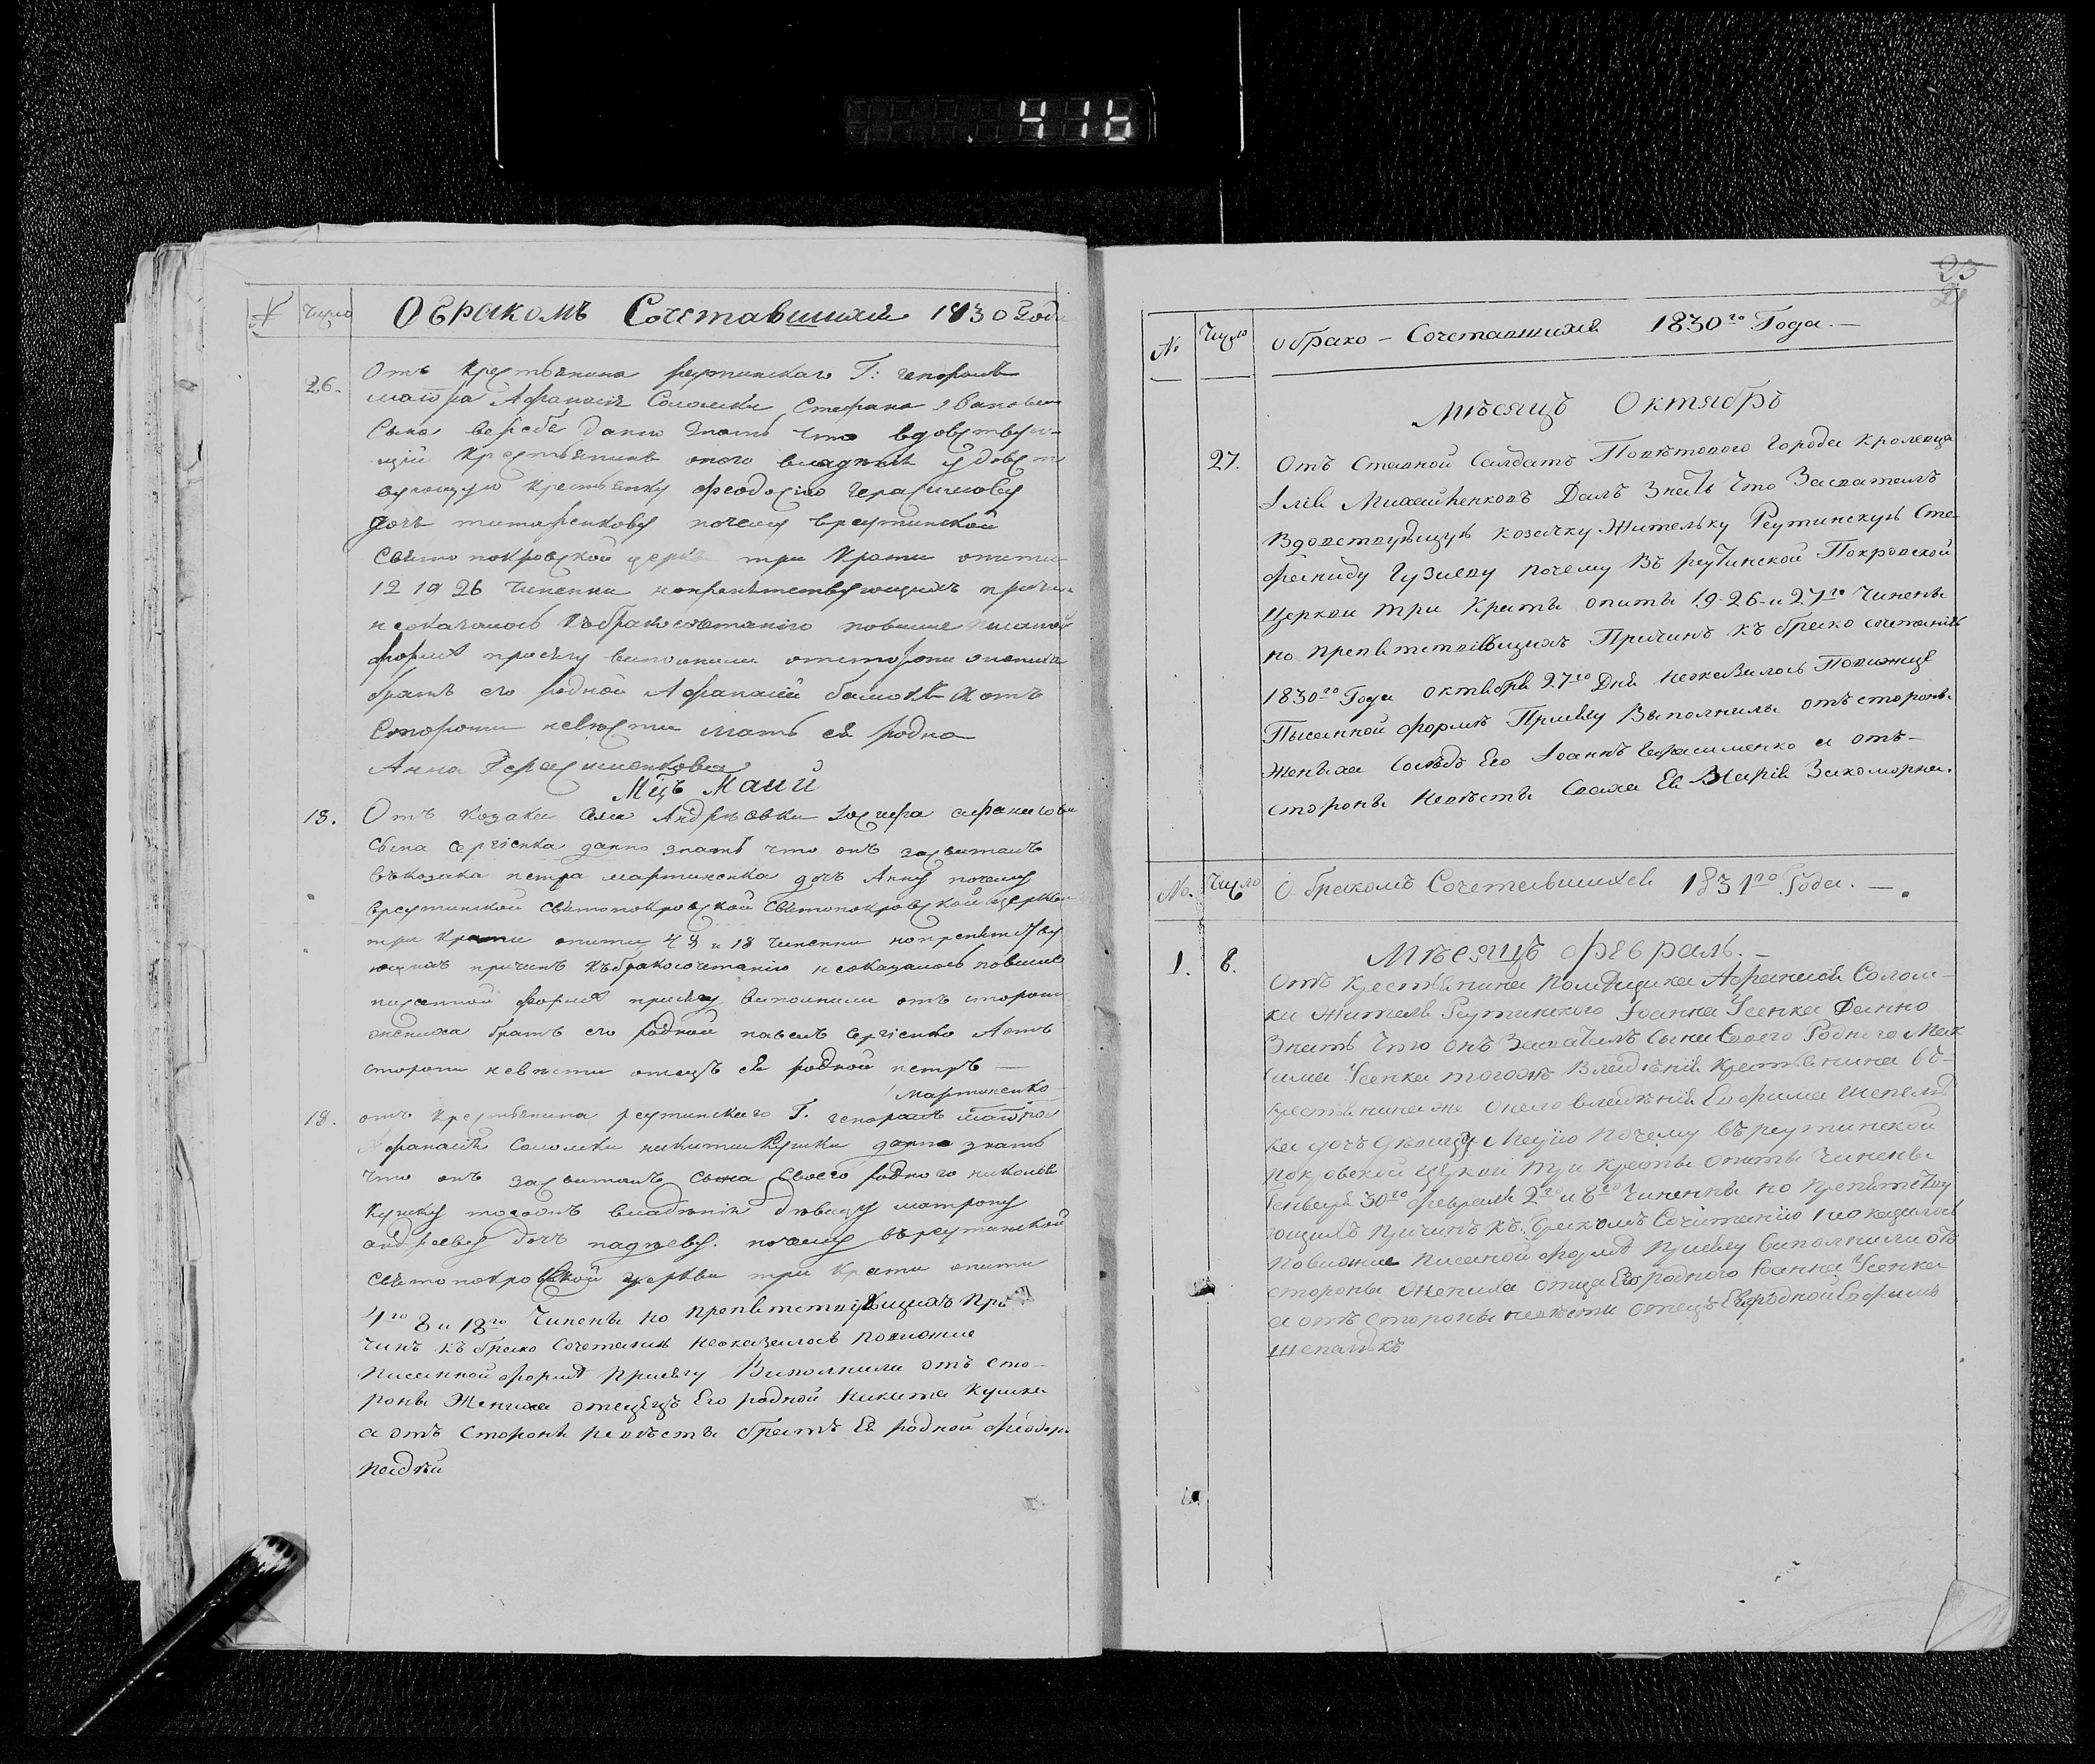 416
Число
О бракомъ Сочетавшихся 1830 Года
26.
Отъ Крестьянина реутинскаго Г: генералъ
маіора Афанасія Соломки Стефана Ивановича
Сына себе дано знать что вдовствую-
щій Крестьянинъ оного владенія удовст
вующую крестьянку феодосію Герасимову
дочь титаренкову почему вреутинской
Свято покровской церкви три Крати опити
12 19 26 Чиненни нопрепятствующихъ причин
неоказалось Къбракосочетанію повыше писаной
форме присягу виполнили отстороны жениха
братъ его родной Афанасій Аотъ
Стороны невести мать ея родна
Анна Герасименкова
Мцъ Маий
18.
Отъ Козака села Андреовки
сына Сергіенка данно знать что онъ засваталъ
въкозака петра мартиненка дочь Анну почему
вреутинской Святопокровской Святопокровской церкви
три Крати опити 4 8 и 18 Чиненни нопрепятству
ющихъ причинъ Къбракосочетанію неоказалось повише
писанной форме присягу виполнили отъ стороны
жениха братъ его родной павелъ Сергіенко Аотъ
стороны невести отецъ ея родной петръ —
Мартиненко
18.
отъ Крестьянина реутинскаго Г. генералъ маіора
Афанасія Соломки никити Кушки данно знать
что онъ засваталъ сына своего родного николая
Кушку тогожъ владенія девицу матрону
андрееву дочъ падиеву. почему въреутинской
святопокровской церкви три Крати опити
4го 8 и 18го Чинены но препятствующихъ При
чинъ къ брако сочетанія неоказалось повыжше
писанной форме Присягу Виполнили отъ сто-
роны Жениха отецъ Его родной Никита Кушка
а отъ стороны невесты братъ Ея родной феодоръ
падей
23
№ Число
о брако - Сочетавшихся 1830го Года. —
Месяцъ Октябръ
27.
Отъ Ставной Салдатъ Поветового города Кролевца
Ілія Михайленковъ Далъ Знать Что Засваталъ
Вдовствующую козачку Жительку Реутинскую Сте-
фаниду Гузиеву почему Въ реутинской Покровской
Церкви три Краты опиты 19-26-и 27го Чинены
но препятствующихъ Причинъ къ брако сочетанію
1830го Года октября 27го Дня неоказалось Повижще
Пысанной форме Присягу Выполнилы отъ стороны
Женыха Соседъ Его Іоаннъ Герасименко а отъ-
стороны невесты Сваха Ея Марія Закоморна.
№. Число
О бракомъ Сочетавшихся 1831го Года. — .
Месяцъ февраль. —
1. 8.
Отъ Крестянина помещика Афанасія Солом-
ки жителя Реутинского Іоанна Усенка Данно
Знать Что онъ Засваталъ Сына Своего Родного Мак
сима Усенка тогожъ Владенія Крестянина въ-
крестянина же оного владенія Ефрима шепель
ка дочъ девицу почему въ реутинской
покровской церкви три краты опиты Чинены
Генваря 30го февраля 2го и 8го Чиненны но препятству
ющихъ причинъ къ. бракомъ Сочитанію неоказалось
Повижше писаной форме присягу виполнили отъ
стороны жениха отца Его родного Іоанна Усенка
а отъ стороны невести отецъ Ея родной Ефримъ
шепалекъ